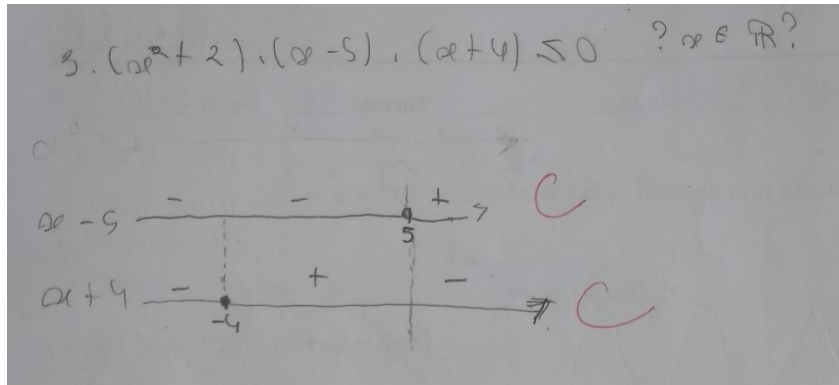 3. (x²+2).(x-5).(x+4) ≤0 ?x∈ℝ?
- - +
x-5
5
- + -
x+4
-4
C
C